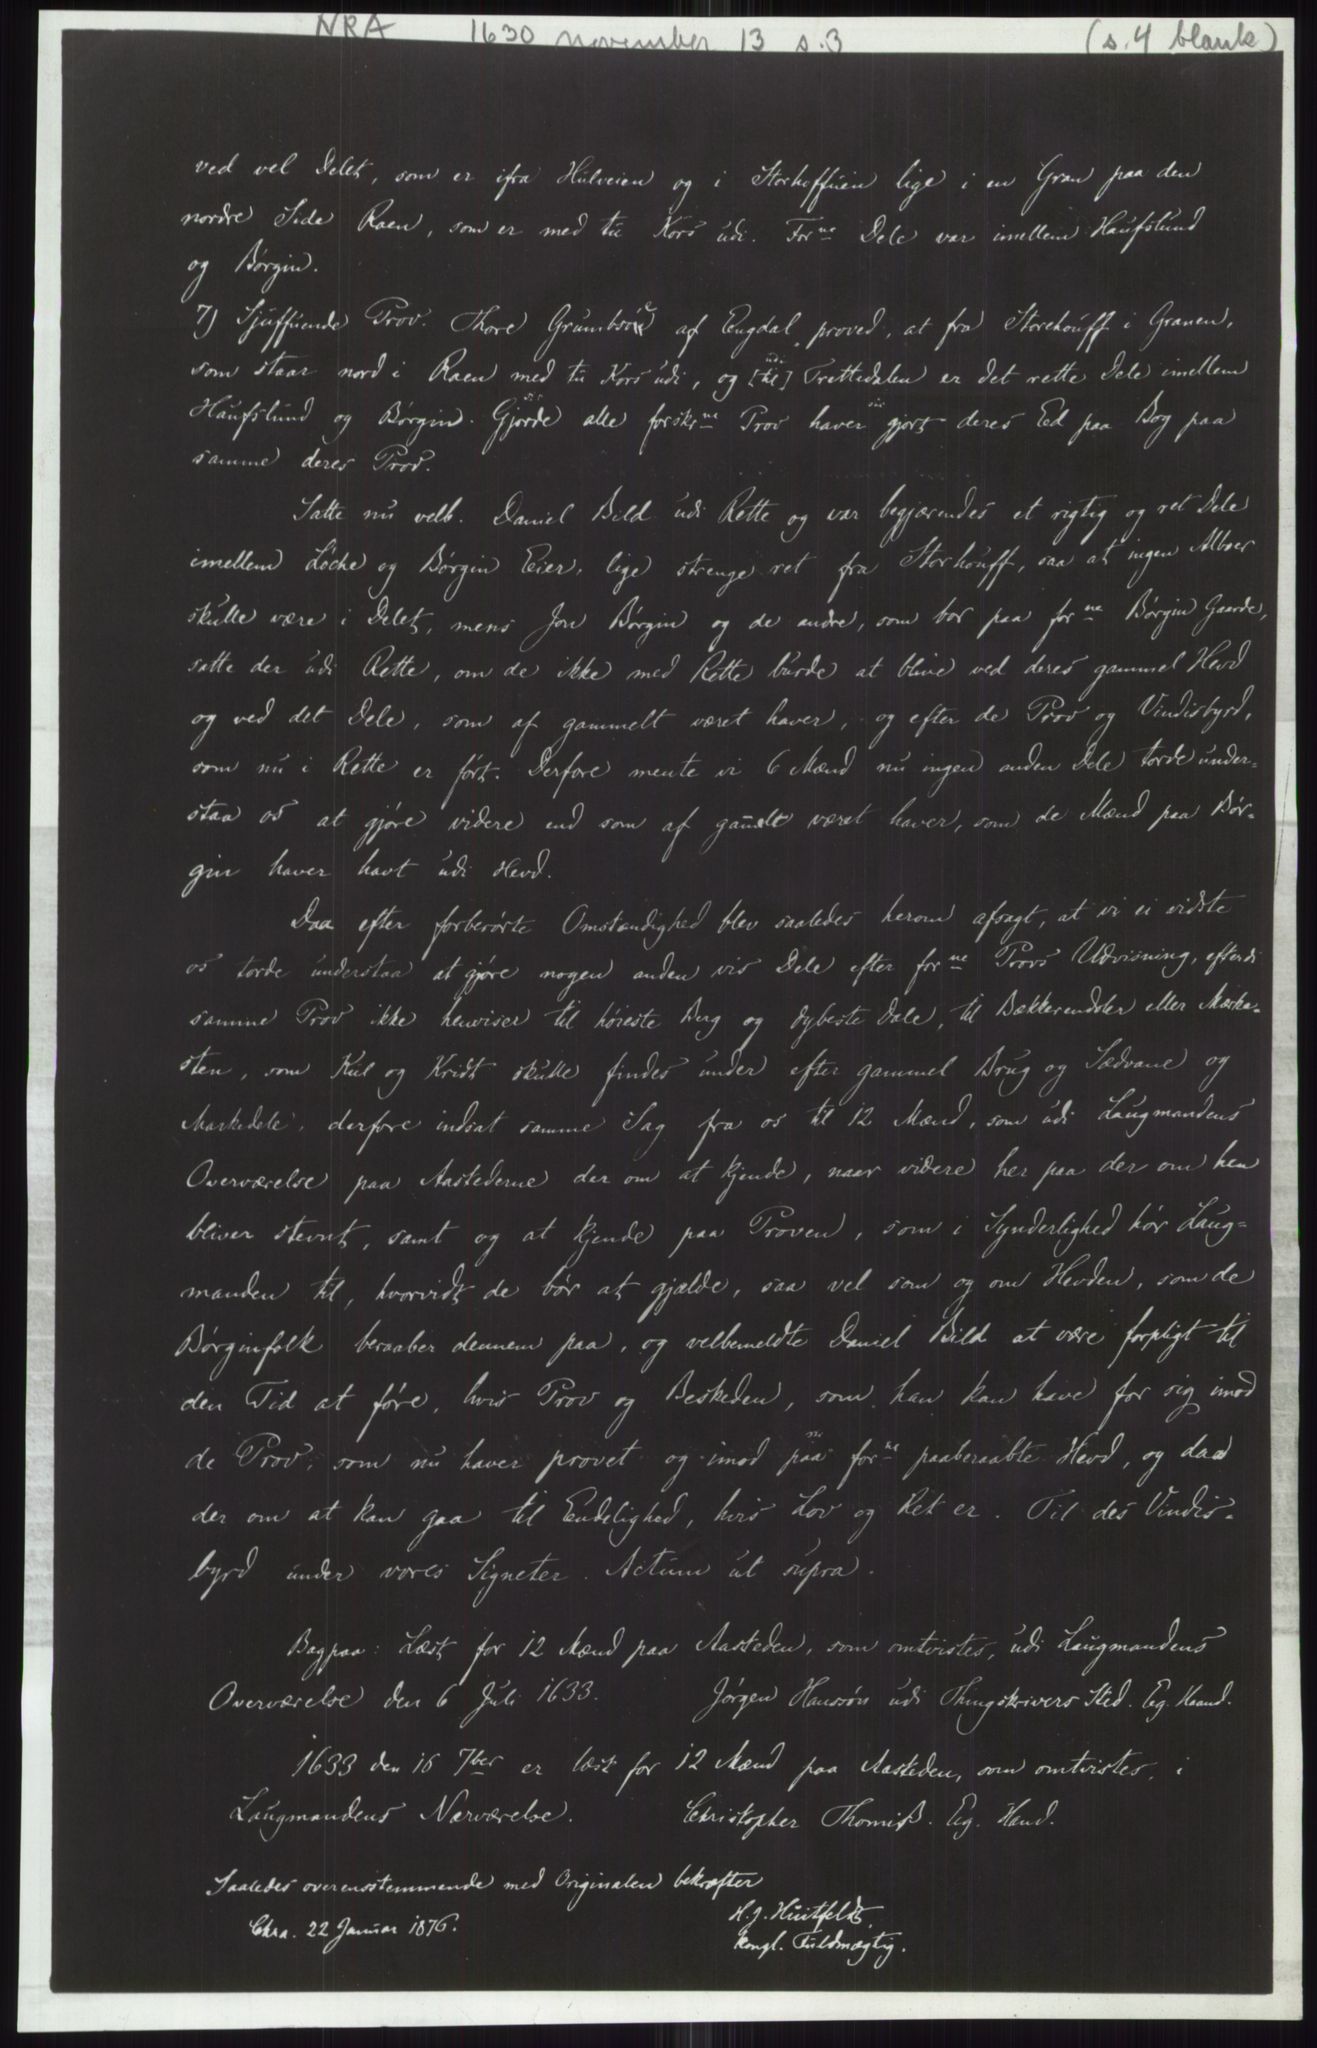 NRA 1630 november 13 s. 3 (s. 4 blank)
ved vel Delet, som er ifra Hulveien og i Storhoffuen lige i en Gran paa den
nordre Side Raen, som er med tu Kors udi. Forne Dele var imellem Haufslund
og Børgin.
7) Sjuffuende Prov. Thore af Eugdal, proved, at fra Storehouff i Granen,
som staar nord i Raen med tu Kors udi, og [til] udi Trettedalen er det rette Dele imellem
Haufslund og Børgin. Gjorde sic alle forskrne Prov haver sic gjort deres Ed paa Bog paa
samme deres Prov.
Satte nu velb. Daniel Bild udi Rette og var begjærendes et rigtig og ret Dele
imellem Løche og Børgin Eier, lige strenge ret fra Storhouff, saa at ingen Alboer
skulle være i Delet, mens Jon Børgin og de andre, som bor paa forne Børgin Gaarde,
satte der udi Rette, om de ikke med Rette burde at blive ved deres gammel Hevd
og ved det Dele, som af gammelt været haver, og efter de Prov og Vindisbyrd,
som nu i Rette er ført. Derfore mente vi 6 Mænd nu ingen anden Dele torde under-
staa os at gjøre videre end som af gamelt været haver, som de Mænd paa Bør-
gin haver havt udi Hevd.
Daa efter forberørte Omstændighed blev saaledes herom afsagt, at vi ei vidste
os torde understaa at gjøre nogen anden vis Dele efter forne Provs Udvisning, efterdi
samme Prov ikke henviser til høieste Berg og dybeste Dale, til Bækkerendsler eller Mærke-
sten, som Kul og Kridt skulle findes under efter gammel Brug og Sædvane og
Markedele, derfore indsat samme Sag fra os til 12 Mænd, som udi Laugmandens
Overværelse paa Aastederne der om at kjende, naar videre her paa der om hen
bliver stevnt, samt og at kjende paa Proven, som i Synderlighed hør Laug-
manden til, hvorvidt de bør at gjælde, saa vel som og om Hevden, som de
Børginfolk beraaber dennem paa, og velbemeldte Daniel Bild at være forpligt til
den Tid at føre, hvis Prov og Beskeden, som han kan have for sig imod
de Prov, som nu haver provet og imod paa sic forne paaberaabte Hevd, og daa
der om at kan gaa til Endelighed, hvis Lov og Ret er. Til des Vindis-
byrd under vores Signeter. Actum ut supra.
Bagpaa: Læst for 12 Mænd paa Aasteden, som omtvistes, udi Laugmandens
Overværelse den 6 Juli 1633. Jørgen Hanssøn udi Thingskrivers Sted. Eg. Haand.
1633 den 16 7ber er læst for 12 Mænd paa Aasteden, som omtvistes, i
Laugmandens Nærværelse. Christopher Thomiß. Eg. Hand.
Saaledes overensstemmende med Originalen bekræfter
Chra. 22 Januar 1876. H. J. Huitfeldt,
kongl. Fuldmægtig.